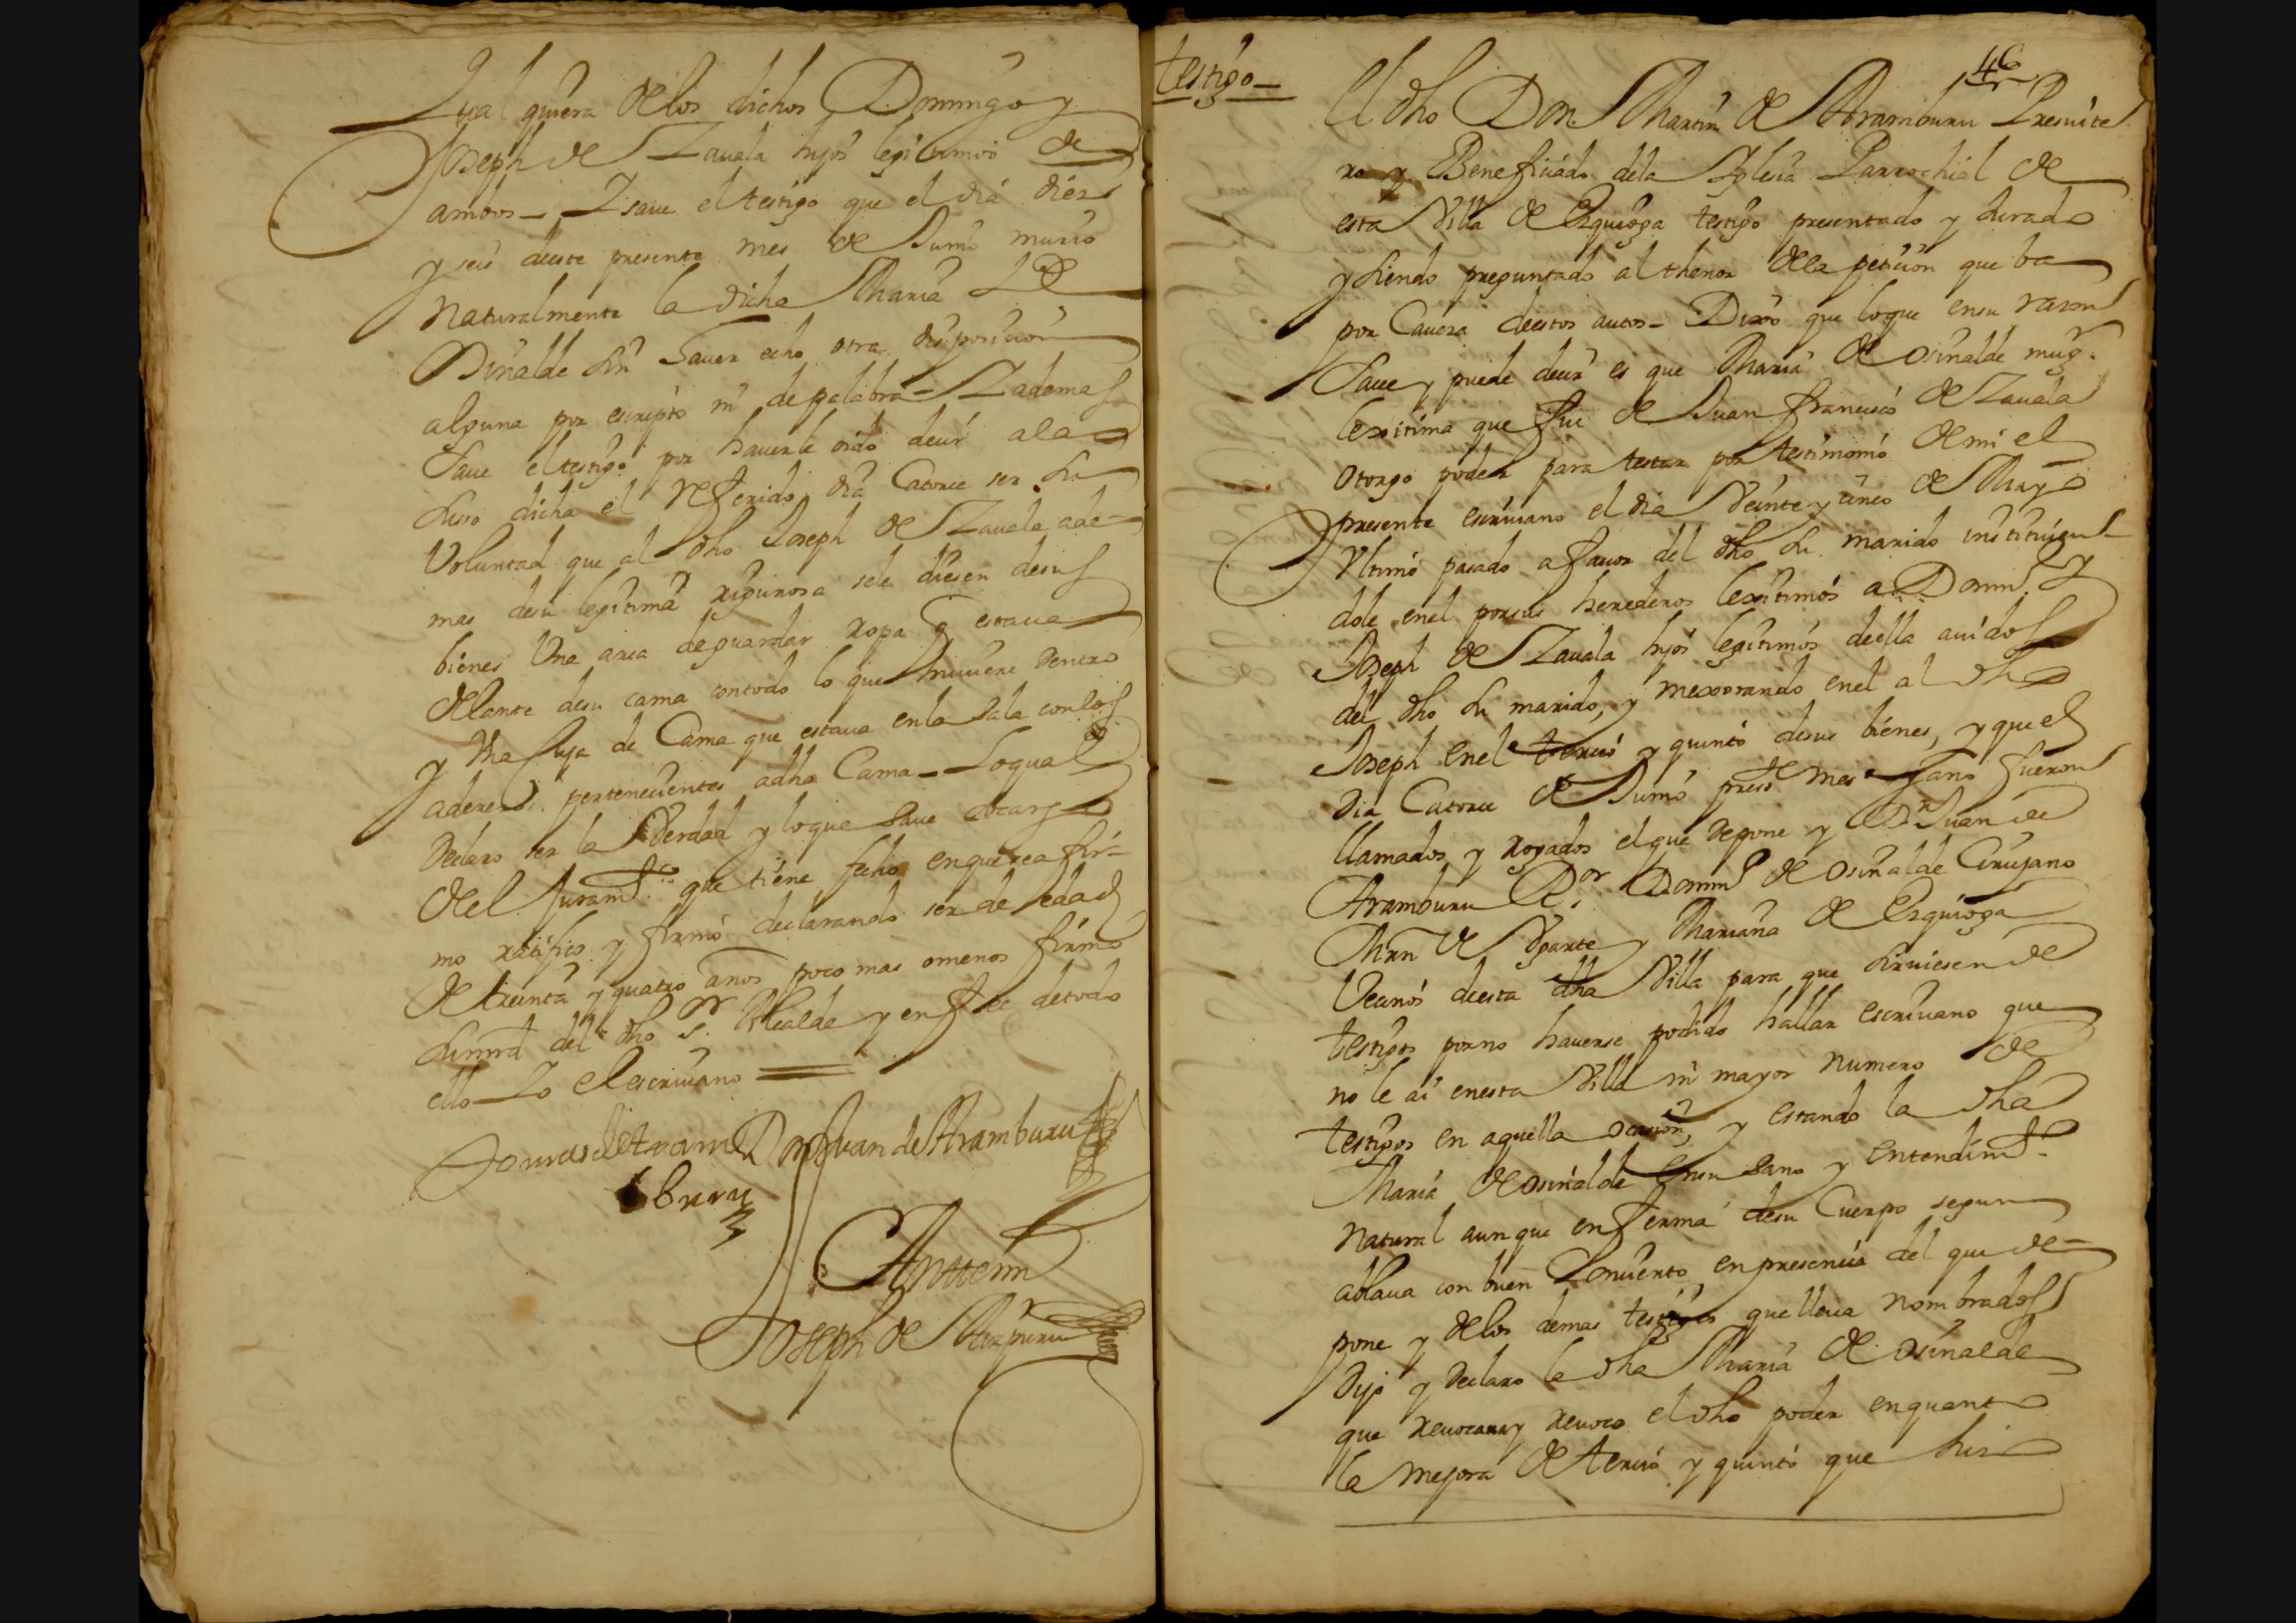 qual quiera de los dichos Domingo y
Joseph de Zauala hijos legitimos de
ambos – Y saue el testigo que el dia diez
y seis deeste presente mes de Junio murio
naturalmente la dicha Maria de
Osinalde sin hauer echo otra disposicion
alguna por escripto ni de palabra – Y ademas
saue el testigo por hauerle oido decir a la
suso dicha el referido dia Catorce ser su
Voluntad que al dho Joseph de Zauala ade-
mas desu legitima rigurosa sele diesen desus
bienes Una arca deguardar ropa q estaua
delante desu cama contodo lo que huuiere dentro
y Una de Cama que estaua enla Sala conlos
aderezos pertenecientes adha Cama – Loqual
declaro ser la Verdad y loque saue socargo
del Juramto que tiene fecho enquesea fir-
mo ratifico y firmo declarando ser de hedad
de treinta y quatro años poco mas omenos firmo
sumrd del dho Sr. Alcalde y en fee detodo
ello Yo el escriuano
Don Juan de Aramburu
Ante mi
Joseph de
46
testigo –
El dho Don Martin de Aramburu Presuite
ro y Beneficiado dela Yglesia Parrochial de
esta Villa de Ezquioga testigo presentado y Jurado
y siendo preguntado al thenor dela peticion que ba
por Caueza deestos autos – Dixo que loque ensu razon
saue y puede decir es que Maria de Osinalde mug.
lexitima que fue de Juan francisco de Zauala
otorgo poder para testar por testimonio de mi el
presente escriuano el dia Veinte y cinco de Mayo
Ultimo pasado afauor del dho su marido instituien-
dole enel porsus herederos lexitimos a Domo y
Joseph de Zauala hijos legitimos deella auidos
del dho su marido, y mexorando enel al dho
Joseph enel tercio y quinto desus bienes, y que el
dia Catorce de Junio preste mes y año fueron
llamados y rogados el que depone y Dn Juan de
Aramburu Domo de Osinalde Cirujano
Mrn de Ygarte y Mariana de Ezquioga
Vecinos deesta dha Villa para que siruiesen de
testigos porno hauerse podido hallar escriuano que
no le ai enesta Villa ni mayor numero de
testigos en aquella ocasion, y estando la dha
Maria de Osinalde ensu sano y entendimto
natural aunque enferma desu Cuerpo segun
ablaua con buen Conuerto, en presencia del que de-
pone y delos demas testigos que lleua nombrados
Dijo y declaro la dha Maria de Osinalde
que reuocaua y reuoco el dho poder enquanto
la mejora de tercio y quinto que hizo